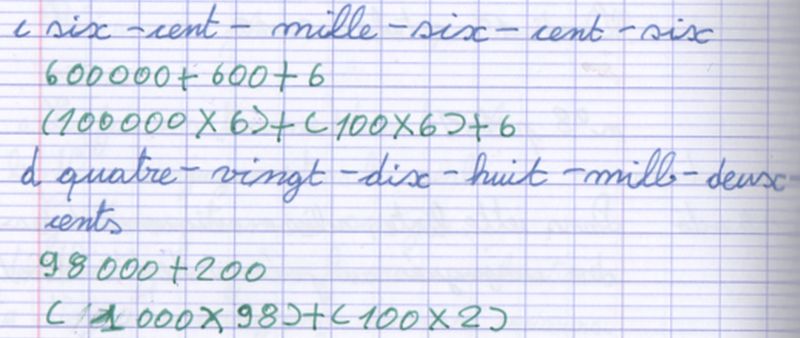 c six-cent-mille-six-cent-six
600000+600+6
(100000×6)+(100×6)+6
d quatre-vingt-dix-huit-mille-deux-
cents
98000+200
(1000×98)+(100×2)